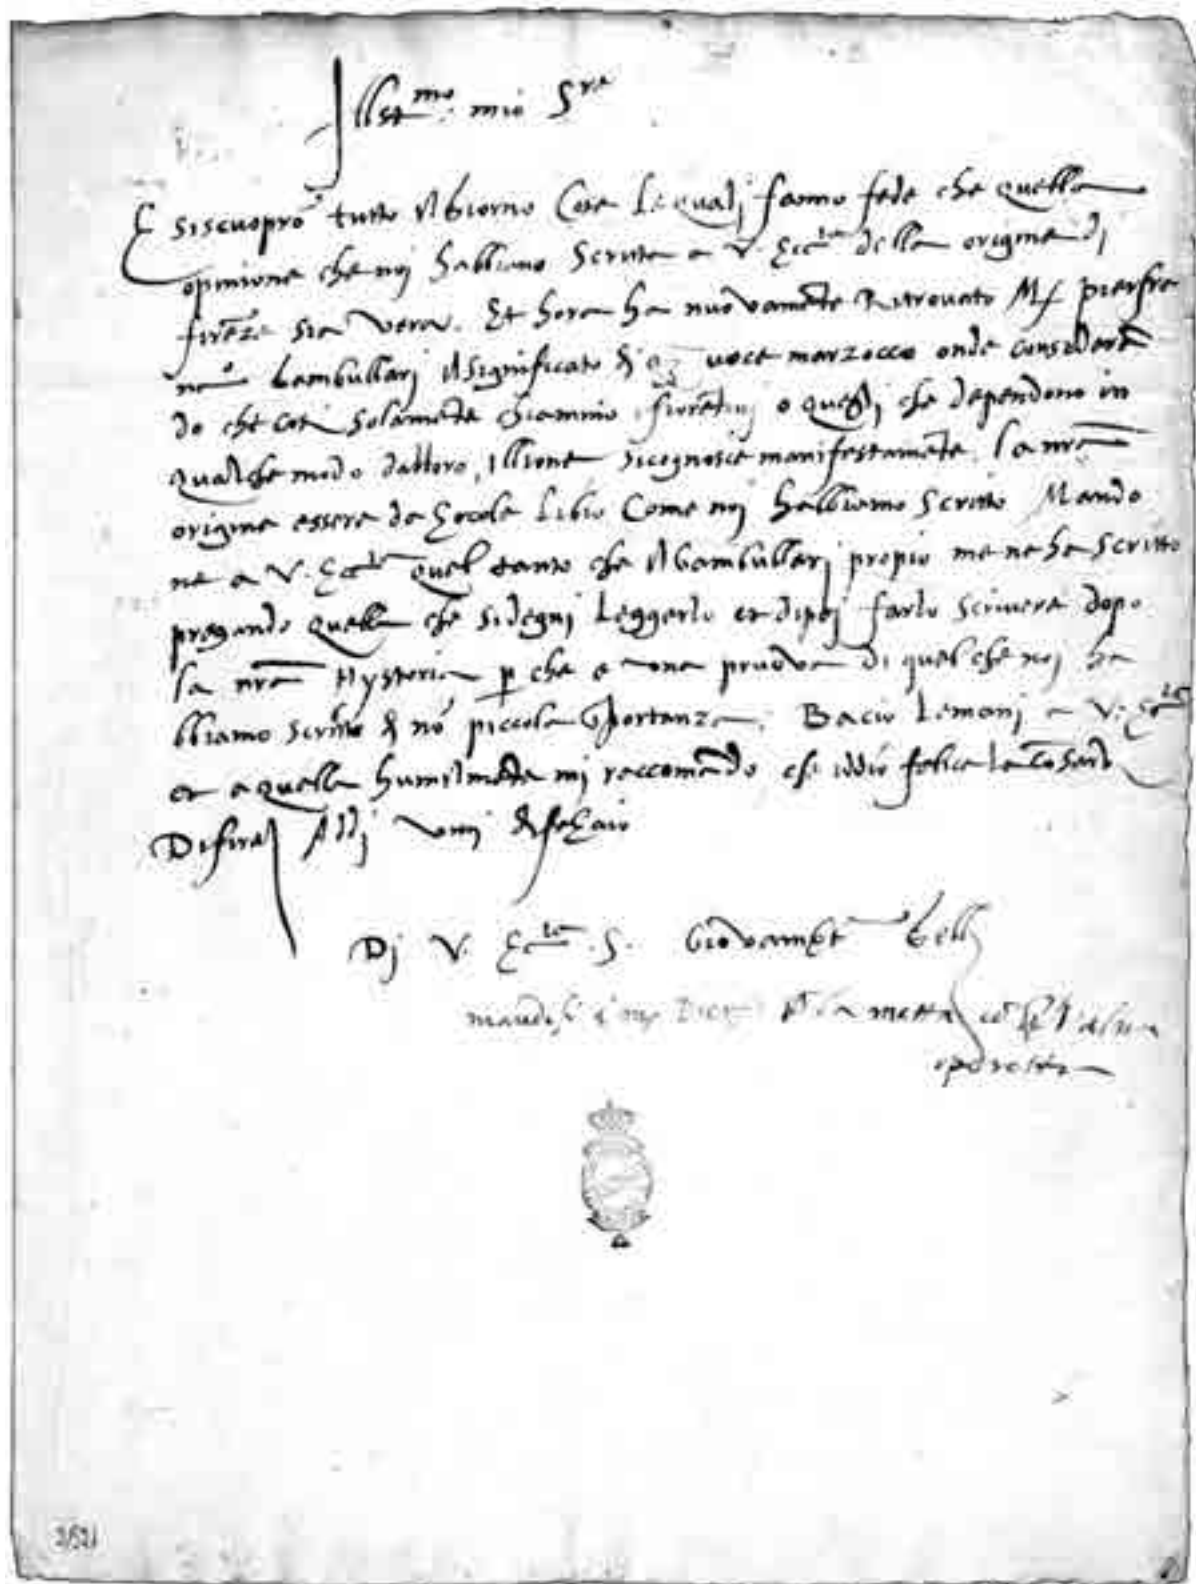 Illst.mo mio S.re
E siscuoprõ tutto Il Giorno Cose Lequalj fanno fede che quella
opinione che noj habbiamo Scritta a V. Ecc.tia della origine dj
firẽze sia vera. Et hora ha nuovamẽte Ritrovato M. pierfra
nc.o Gambullarj Il significato di voce marzocco onde considerã
do che cosi solamẽte chiamino i fiorẽtinj o quegli che dependono in
qualche modo dalloro, Illione sicognosce manifestamẽte la nrã
origine essere da Hercole Libio Come noj habbiamo Scritto Mando
ne a V. Ecc.tia quel tanto che Il Gambullarj propio me ne ha scritto
pregando quella che si degni Leggerlo et dipoj farlo scrivere dopo
la nrã Hystoria p che e una pruova di quel che noj ha
bbiamo scritto di nõ piccola Iportanza. Bacio Lemanj a V. Ecc.tia
et a quella humilmẽte mi raccomãdo che iddio felice la cõservi
Difirẽ Addj viiij di feb.aio
Dj V. Ecc.tia S. Giovambt.a Gellj
la metta cõ l'altra
operetta